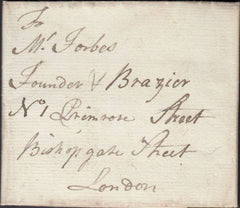 To
Mr. Forbes
Founder & Brazier
No 1 Primrose Street
Bishopgate Street
London